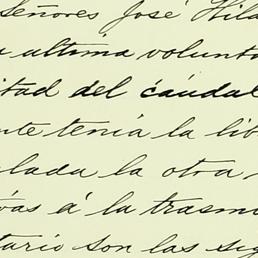 Señores José Hila
a ultima volunta
itad del caudal
nte tenia la lib
alada la otra
vas á la trasmi
tario son las sig